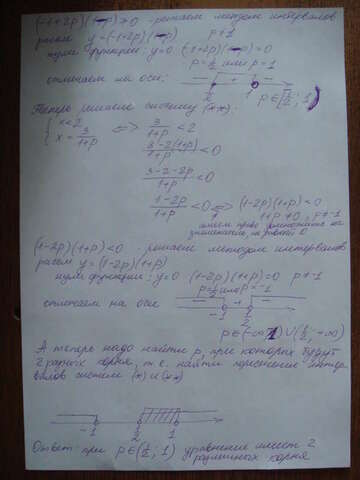 (-1+2p)(1-p)≠0 - решаем методом интервалов
y=(-1+2p)(1-p) p≠1
нули функции: y=0 (-1+2p)(1-p)=0
p=1/2 или p=1
отмечаем на оси: - + -
1/2 1
p∈[1/2; 1)
Теперь решаем систему (**):
{ x<2
x = 3/(1+p) <=> 3/(1+p) < 2
(3-2(1+p))/(1+p) < 0
(3-2-2p)/(1+p) < 0
(1-2p)/(1+p) < 0 <=> (1-2p)(1+p) < 0
1+p≠0, p≠-1
имеем право домножить на
знаменатель,
(1-2p)(1+p)<0 - решаем методом интервалов
y=(1-2p)(1+p)
нули функции: y=0 (1-2p)(1+p)=0 p≠-1
p=1/2 или p=-1
отмечаем на оси - + -
-1 1/2
p∈(-∞; -1)∪(1/2; +∞)
А теперь надо найти p, при которых будут
2 разных корня, т.е. найти пересечение интер
валов систем (*) и (**)
-1 1/2 1
Ответ: при p∈(1/2; 1) уравнение имеет 2
различных корня